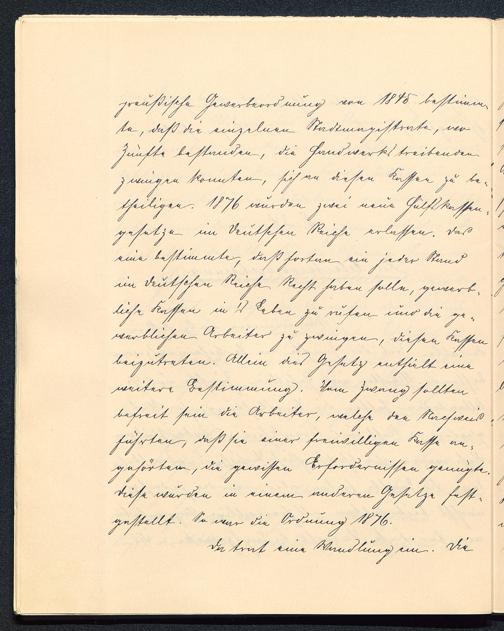 preußische Gewerbeordnung von 1845 bestimm-
te, daß die einzelnen Stadtmagistrate, wo
Zünfte bestanden, die Handwerkstreibenden
zwingen konnten, sich an diesen Kassen zu be-
theiligen. 1876 wurden zwei neue Hülfskassen-
gesetze im Deutschen Reiche erlassen. Das
eine bestimmte, daß fortan ein jeder Stand
im deutschen Reiche Recht haben solle, gewerb-
liche Kassen in's Leben zu rufen und die ge-
werblichen Arbeiter zu zwingen, diesen Kassen
beizutreten. Allein das Gesetz enthielt eine
weitere Bestimmung. Vom Zwang sollten
befreit sein die Arbeiter, welche den Nachweis
führten, daß sie einer freiwilligen Kasse an-
gehörten, die gewissen Erfordernissen genügte.
diese wurden in einem anderen Gesetze fest-
gestellt. So war die Ordnung 1876.
Da trat eine Wandlung ein. Die